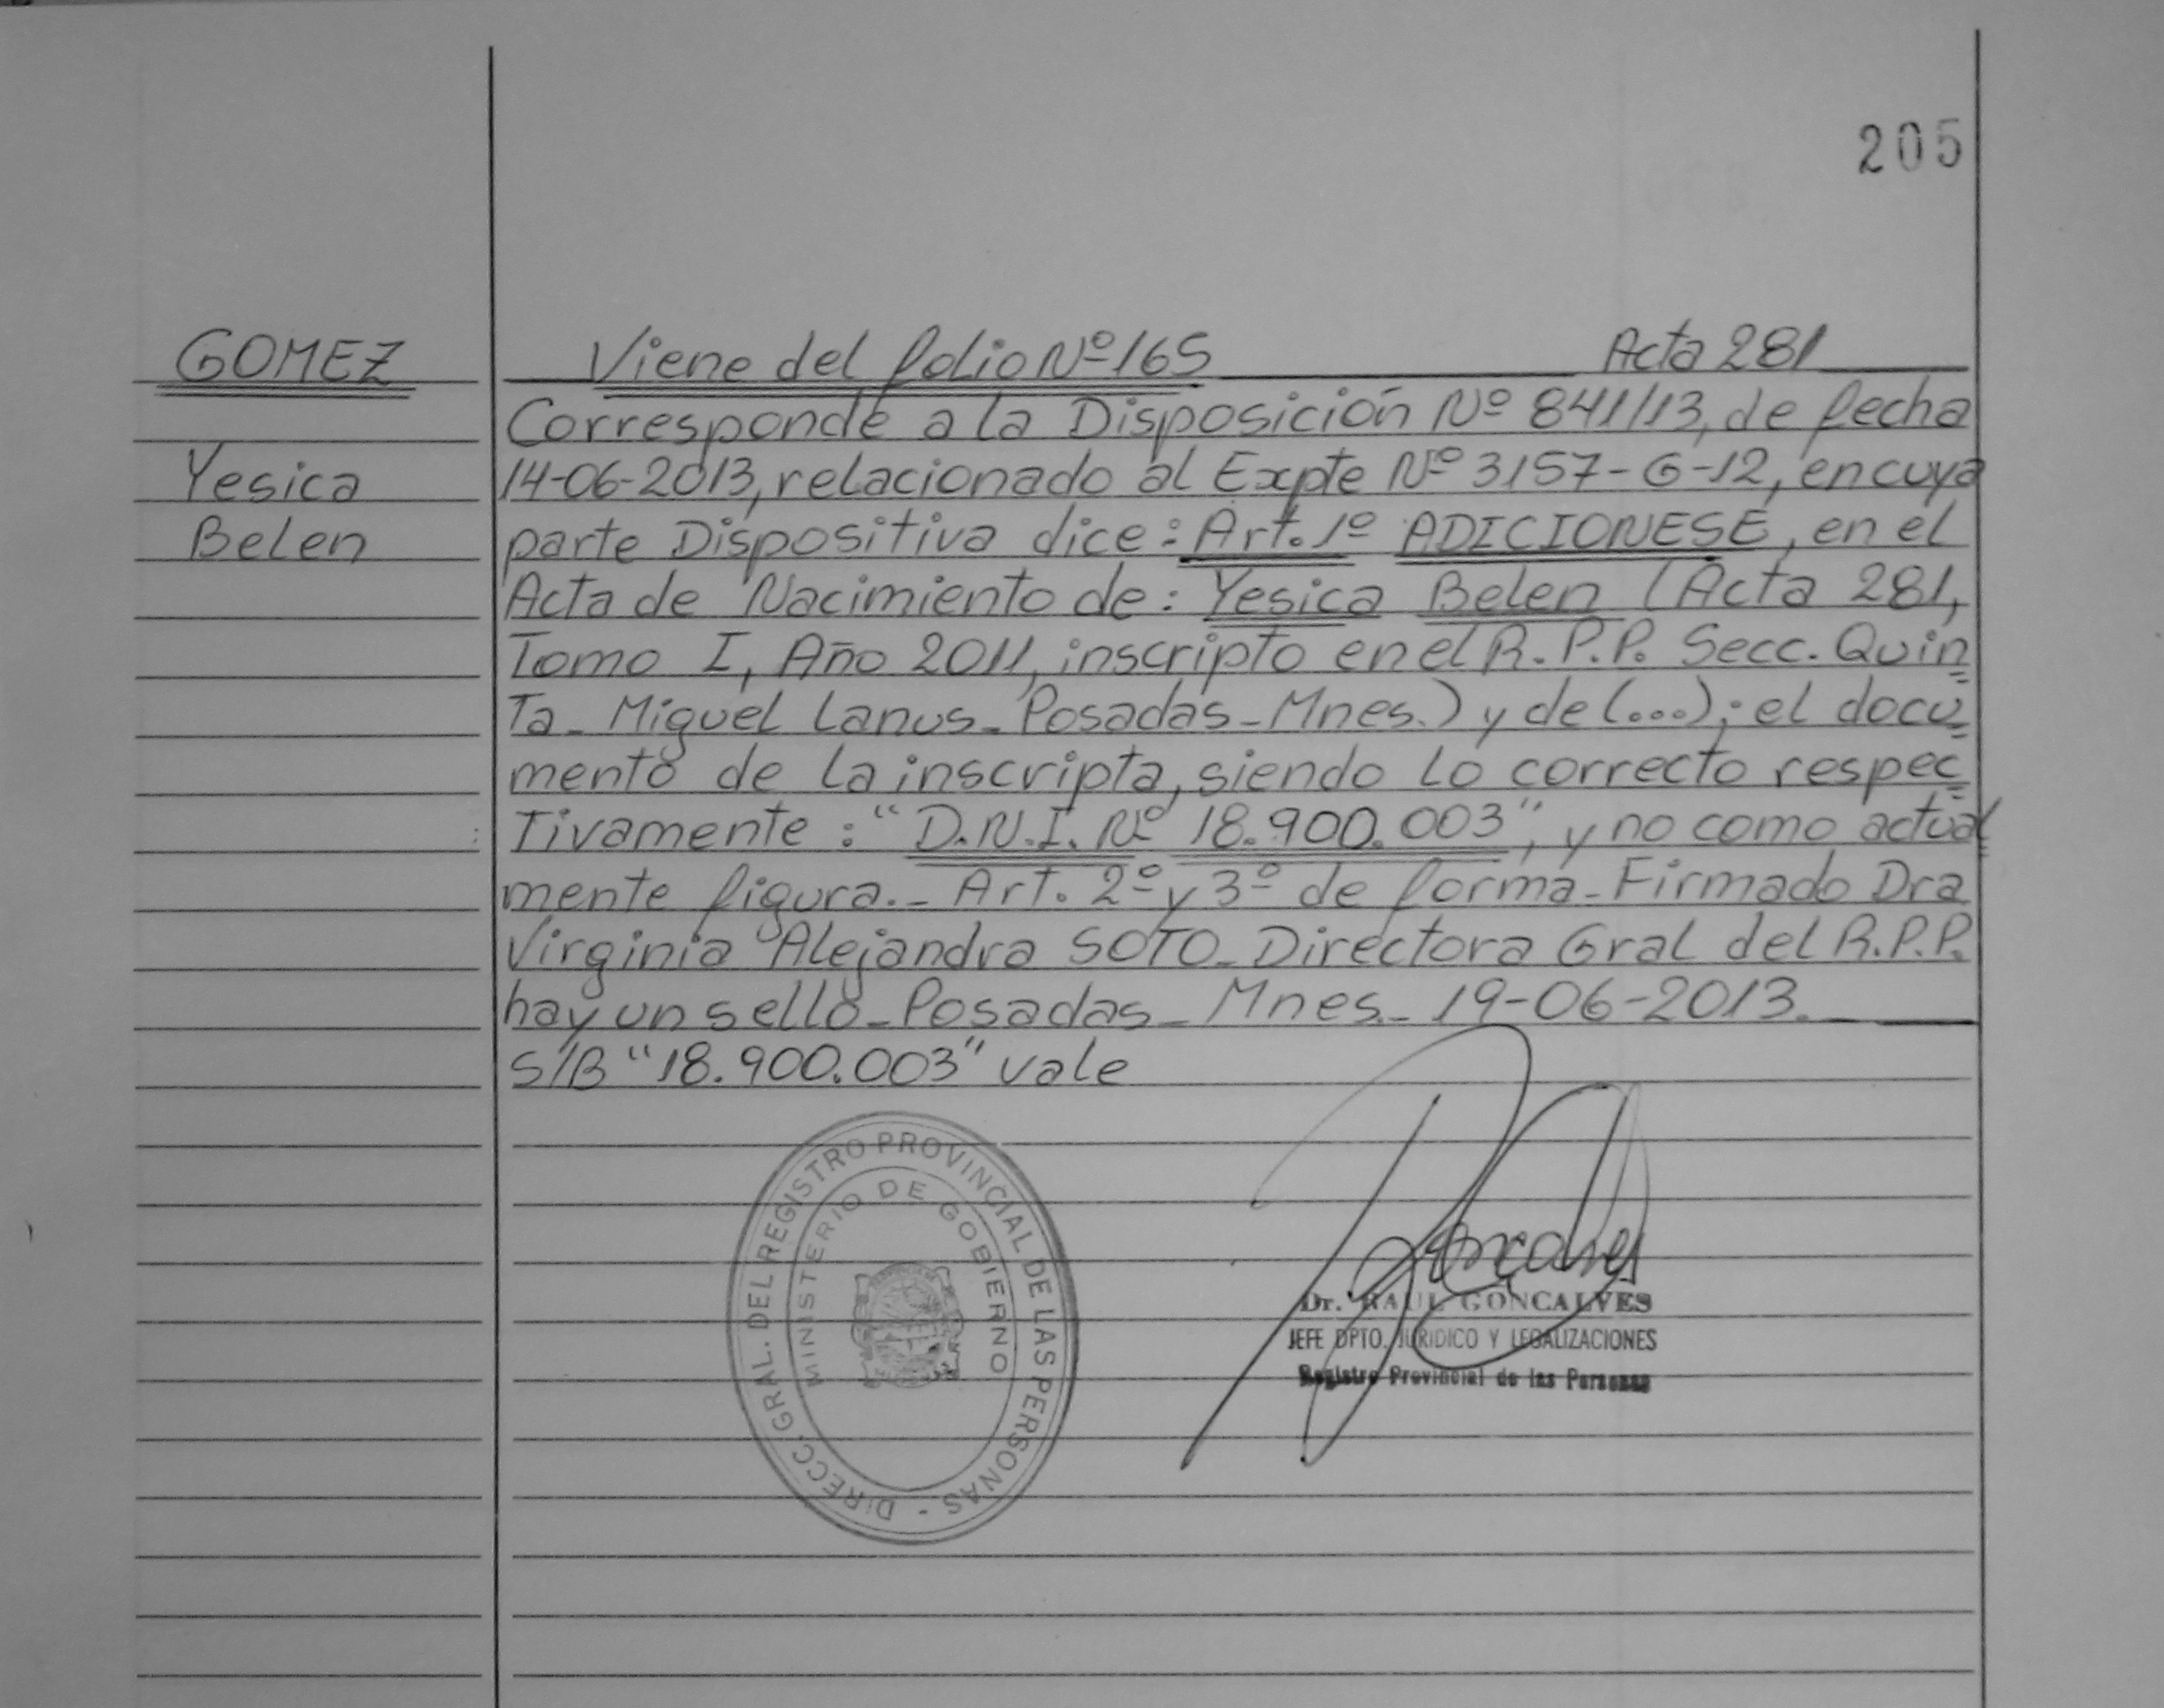 205
GOMEZ
Yesica
Belen
Viene del folio Nº 165 Acta 281
Corresponde a la Disposición Nº 841/13, de fecha
14-06-2013, relacionado al Expte Nº 3157-G-12, en cuya
parte Dispositiva dice: Art. 1º ADICIONESE, en el
Acta de Nacimiento de: Yesica Belen (Acta 281,
Tomo I, Año 2011, inscripto en el R.P.P. Secc. Quin
ta_ Miguel Lanus_ Posadas_Mnes.) y de (...); el docu
mento de la inscripta, siendo lo correcto respec
tivamente: "D.N.I. Nº 18.900.003", y no como actual
mente figura._ Art. 2º y 3º de forma_Firmado Dra
Virginia Alejandra SOTO_Directora Gral del R.P.P.
hay un sello_Posadas_Mnes_19-06-2013.
S/B "18.900.003" vale
DIRECC. GRAL. DEL REGISTRO PROVINCIAL DE LAS PERSONAS -
MINISTERIO DE GOBIERNO
Dr. RAUL GONCALVES
JEFE DPTO. JURIDICO Y LEGALIZACIONES
Registro Provincial de las Personas